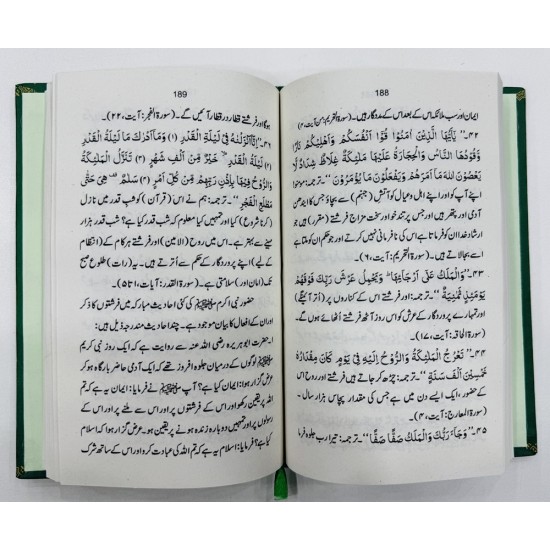 188
ایمان اور سب ملائکہ اس کے بعد اس کے مددگار ہیں۔ (سورۃ التحریم: من آیت، ۴)
۴۲-''يٰٓاَيُّهَا الَّذِيْنَ اٰمَنُوْا قُوْٓا اَنْفُسَكُمْ وَاَهْلِيْكُمْ نَارًا
وَّقُوْدُهَا النَّاسُ وَالْحِجَارَةُ عَلَيْهَا مَلٰٓئِكَةٌ غِلَاظٌ شِدَادٌ لَّا
يَعْصُوْنَ اللهَ مَآ اَمَرَهُمْ وَيَفْعَلُوْنَ مَا يُؤْمَرُوْنَ''-ترجمہ: مومنو!
اپنے آپ کو اور اپنے اہل و عیال کو آتش (جہنم) سے بچاؤ جس کا ایندھن
آدمی اور پتھر ہیں اور جس پر تند خو اور سخت مزاج فرشتے (مقرر) ہیں جو
ارشاد خدا ان کو فرماتا ہے اس کی نافرمانی نہیں کرتے اور جو حکم ان کو ملتا ہے
اسے بجا لاتے ہیں۔ (سورۃ التحریم: آیت، ۶)
۴۳-''وَالْمَلَكُ عَلٰٓى اَرْجَآئِهَا ؕ وَيَحْمِلُ عَرْشَ رَبِّكَ فَوْقَهُمْ
يَوْمَئِذٍ ثَمٰنِيَةٌ''-ترجمہ: اور فرشتے اس کے کناروں پر (اُتر آئینگے)
اور تمہارے پروردگار کے عرش کو اس روز آٹھ فرشتے اُٹھائے ہوں گے۔
(سورۃ الحاقہ: آیت، ۱۷)
۴۴-''تَعْرُجُ الْمَلٰٓئِكَةُ وَالرُّوْحُ اِلَيْهِ فِيْ يَوْمٍ كَانَ مِقْدَارُهٗ
خَمْسِيْنَ اَلْفَ سَنَةٍ''-ترجمہ: چڑھ کر جاتے ہیں فرشتے اور روح اس
کے حضور، ایک ایسے دن میں ہے جس کی مقدار پچاس ہزار سال۔
(سورۃ المعارج: آیت، ۴)
۴۵-''وَجَآءَ رَبُّكَ وَالْمَلَكُ صَفًّا صَفًّا''-ترجمہ: تیرا رب جلوہ فرما
189
ہوگا اور فرشتے قطار در قطار آئیں گے۔ (سورۃ الفجر: آیت، ۲۲)
۴۶-''اِنَّآ اَنْزَلْنٰهُ فِيْ لَيْلَةِ الْقَدْرِ (۱) وَمَآ اَدْرٰىكَ مَا لَيْلَةُ الْقَدْرِ
(۲) لَيْلَةُ الْقَدْرِ ۙ خَيْرٌ مِّنْ اَلْفِ شَهْرٍ (۳) تَنَزَّلُ الْمَلٰٓئِكَةُ
وَالرُّوْحُ فِيْهَا بِاِذْنِ رَبِّهِمْ مِّنْ كُلِّ اَمْرٍ (۴) سَلٰمٌ ۛ هِيَ حَتّٰى
مَطْلَعِ الْفَجْرِ''-ترجمہ: ہم نے اس (قرآن) کو شب قدر میں نازل
(کرنا شروع) کیا اور تمہیں کیا معلوم کہ شب قدر کیا ہے؟ شب قدر ہزار
مہینے سے بہتر ہے۔ اس میں روح (الامین) اور فرشتے ہر کام کے (انتظام
کے لیے) اپنے پروردگار کے حکم سے اُترتے ہیں۔ یہ (رات) طلوع صبح
تک (امان) اور (سلامتی) ہے۔ (سورۃ القدر: آیات، ۱ تا ۵)
حضور نبی اکرم ﷺ کی کئی احادیث مبارکہ میں فرشتوں کا ذکر
اور ان کے افعال کا بیان موجود ہے۔ چند احادیث مندرجہ ذیل ہیں:
حضرت ابو ہریرہ رضی اللہ عنہ سے روایت ہے کہ ایک روز نبی کریم
ﷺ لوگوں میں جلوہ افروز تھے کہ ایک آدمی حاضر بارگاہ ہو کر
عرض گزار ہوا: ایمان کیا ہے؟ آپ ﷺ نے فرمایا: ایمان یہ ہے کہ تم
اللہ پر یقین رکھو اور اس کے فرشتوں پر اور اس سے ملنے پر اور اس کے
رسولوں پر اور تمہیں دوبارہ زندہ ہونے پر یقین ہو۔ عرض گزار ہوا کہ اسلام
کیا ہے؟ فرمایا: اسلام یہ ہے کہ تم اللہ کی عبادت کرو اور اس کے ساتھ شرک